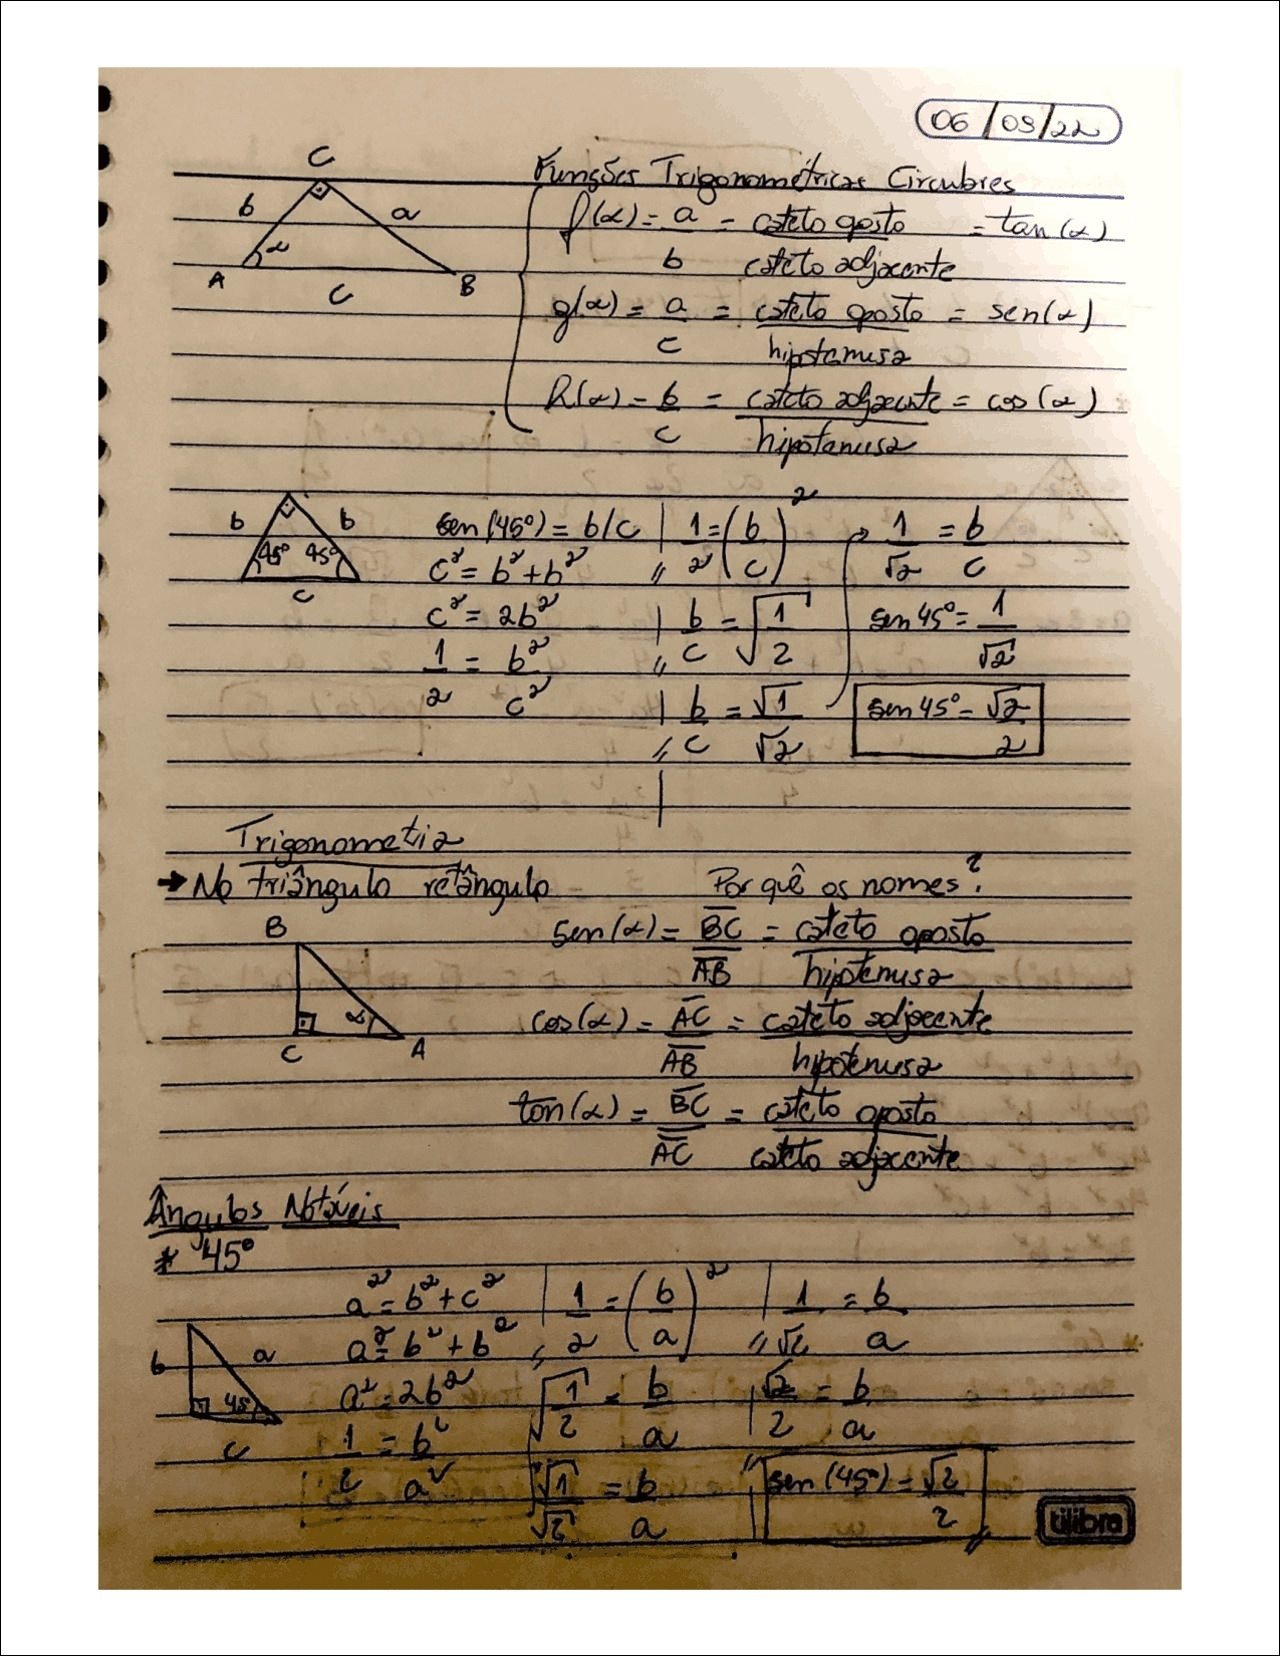 06/09/22
Funções Trigonométricas Circulares
C
b a
α
A B
C
f(α) = a/b = cateto oposto/cateto adjacente = tan(α)
g(α) = a/c = cateto oposto/hipotenusa = sen(α)
h(α) = b/c = cateto adjacente/hipotenusa = cos(α)
b b
45° 45°
c
sen(45°) = b/c
c² = b² + b²
c² = 2b²
1/2 = b²/c²
1/2 = (b/c)²
b/c = √(1/2)
b/c = √1/√2
1/√2 = b/c
sen 45° = 1/√2
sen 45° = √2/2
Trigonometria
→ No triângulo retângulo
Por quê os nomes?
B
α
C A
sen(α) = BC/AB = cateto oposto/hipotenusa
cos(α) = AC/AB = cateto adjacente/hipotenusa
tan(α) = BC/AC = cateto oposto/cateto adjacente
Ângulos Notáveis
* 45°
b a
45°
c
a² = b² + c²
a² = b² + b²
a² = 2b²
1/2 = b²/a²
1/2 = (b/a)²
√(1/2) = b/a
√1/√2 = b/a
1/√2 = b/a
√2/2 = b/a
sen(45°) = √2/2
tilibra